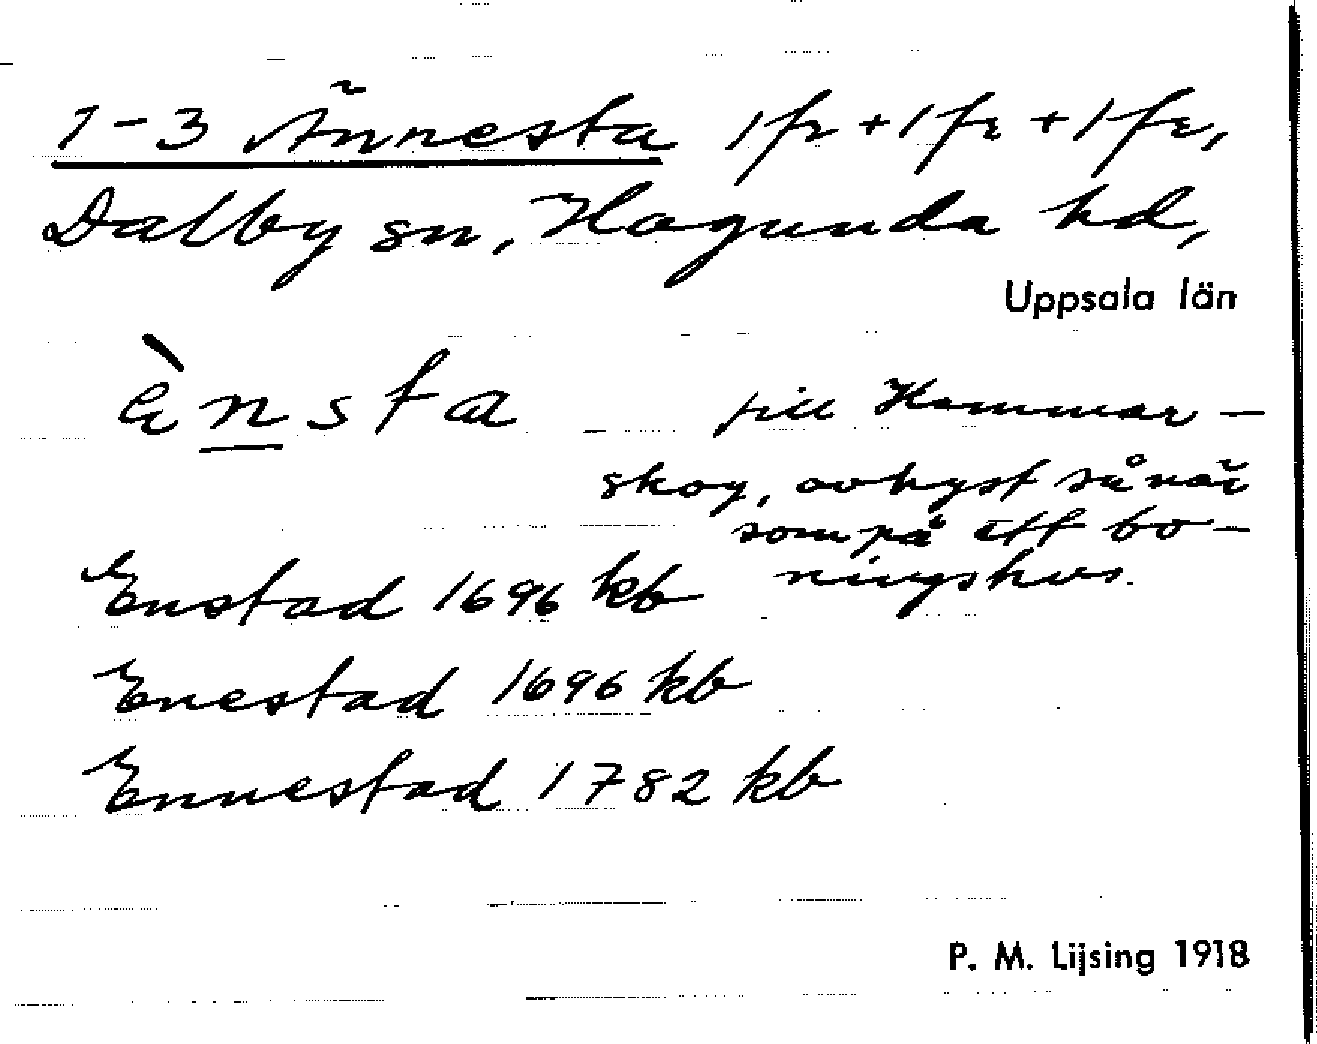 1-3 Ännesta 1 fr + 1 fr + 1 fr,
Dalby sn, Hagunda hd,
Uppsala län
ènsta till Hammar-
skog, avhyst så när
som på ett bo-
ningshus.
Enstad 1696 kb
Enestad 1696 kb
Ennestad 1782 kb
P. M. Lijsing 1918